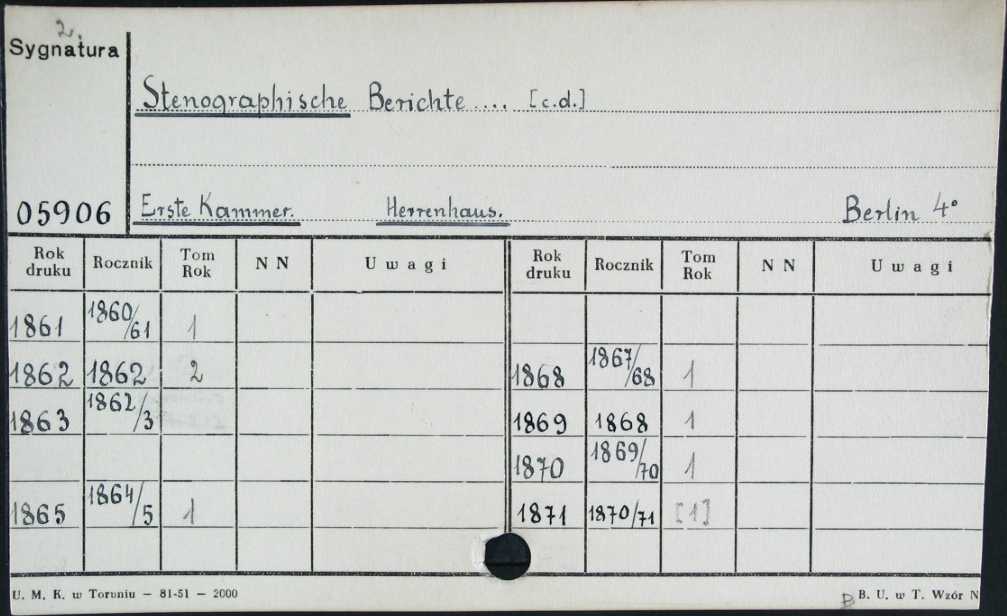 2.
Sygnatura
Stenographische Berichte .... [c.d.]
05906
Erste Kammer. Herrenhaus. Berlin 4°
Rok druku Rocznik Tom Rok N N Uwagi Rok druku Rocznik Tom Rok N N Uwagi
1861 1860/61 1
1862 1862 2 1868 1867/68 1
1863 1862/3 1869 1868 1
1870 1869/70 1
1865 1864/5 1 1871 1870/71 [1]
U. M. K. w Toruniu — 81-51 — 2000
B. U. w T. Wzór N